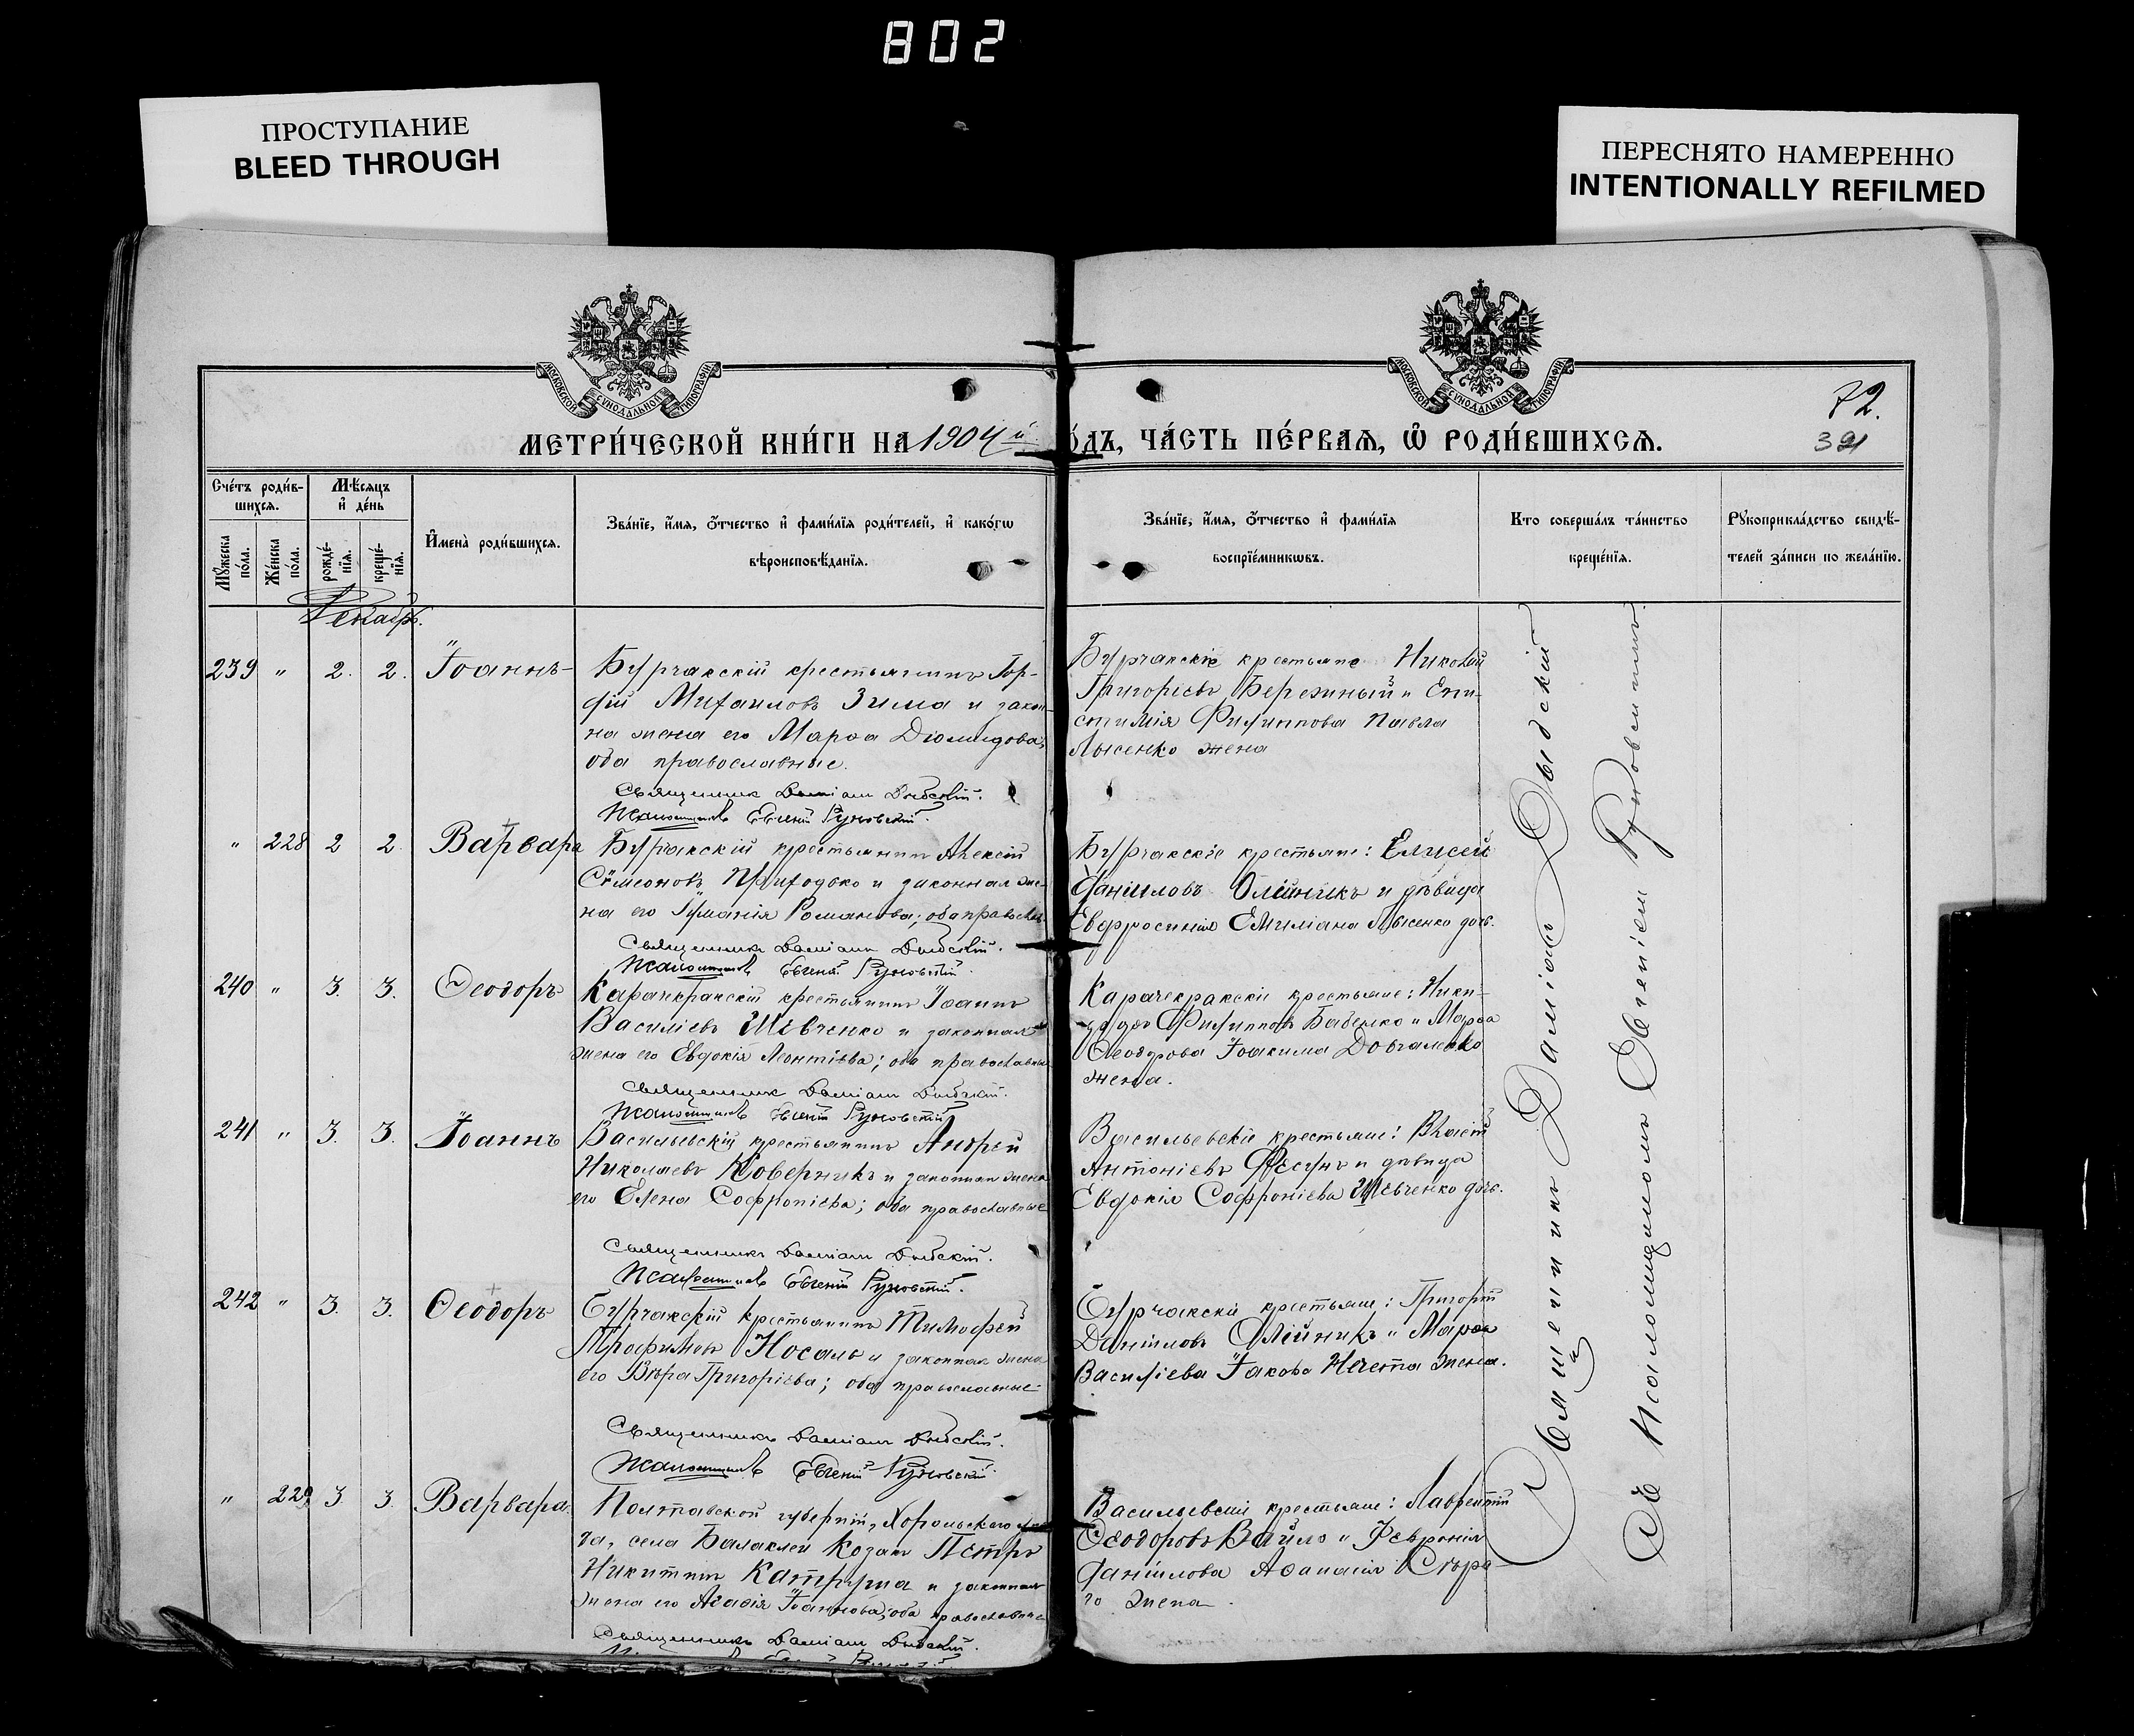 802
ПРОСТУПАНИЕ
BLEED THROUGH
ПЕРЕСНЯТО НАМЕРЕННО
INTENTIONALLY REFILMED
МОСКОВСКОЙ СѴНОДАЛЬНОЙ ТИПОГРАФІИ
МОСКОВСКОЙ СѴНОДАЛЬНОЙ ТИПОГРАФІИ
72.
391
МЕТРИ́ЧЕСКОЙ КНИ́ГИ НА 1904 й
о́дъ, ЧА́СТЬ ПЕ́РВАЯ, Ѡ҆ РОДИ́ВШИХСЯ.
Сче́тъ роди́в-
шихся.
Мꙋ́жеска по́ла.
Же́нска по́ла.
Мѣ́сяцъ
и҆ де́нь
рожде́-
нїя.
креще́-
нїя.
И҆мена̀ роди́вшихся.
Зва́нїе, и҆́мя, ѻ҆́тчество и҆ фами́лїя роди́телей, и҆ како́гѡ
вѣроисповѣ́данїя.
Зва́нїе, и҆́мя, ѻ҆́тчество и҆ фами́лїя
воспрїе́мникѡвъ.
Кто соверша́лъ та́инство
креще́нїя.
Рꙋкоприкла́дство свидѣ́-
телей за́писи по жела́нїю.
Декабрь.
239 " 2. 2. Іоаннъ
Бурчакскій крестьянинъ Гор-
дій Михаиловъ Зима и закон-
на жена его Марѳа Діомидова;
оба православные.
Священникъ Даміанъ Дыбскій.
Псаломщикъ Евгеній Руновскій.
Бурчакскіе крестьяне Николай
Григорьевъ Бережный и Епи-
стимія Филиппова Павла
Лысенко жена
" 228 2 2 Варвара
Бурчакскій крестьянинъ Алексій
Сѵмеоновъ Приходько и законная же-
на его Романова; оба правосл.
Священникъ Даміанъ Дыбскій.
Псаломщикъ Евгеній Руновскій.
Бурчакскіе крестьяне: Елисей
Даніиловъ Олійникъ и дѣвица
Евфросинія Емиліана Лысенко дочь.
240 " 3. 3. Ѳеодоръ
Карачекракскій крестьянинъ Іоаннъ
Василіевъ Шевченко и законная
жена его Евдокія Леонтіева; оба православные
Священникъ Даміанъ Дыбскій.
Псаломщикъ Евгеній Руновскій
Карачекракскіе крестьяне: Ники-
Филипповъ Бабенко и Марѳа
Ѳеодорова Іоакима Довгаленко
жена.
241 " 3. 3. Іоаннъ
Васильевскій крестьянинъ Андрей
Николаевъ Коверникъ и законная жена
его Елена Софроніева; оба православные
Священникъ Даміанъ Дыбскій.
Псаломщикъ Евгеній Руновскій.
Васильевскіе крестьяне: Власій
Антоніевъ Фесунъ и дѣвица
Евдокія Софроніева Шевченко дочь.
242 " 3. 3. Ѳеодоръ
Бурчакскій крестьянинъ Тимофей
Трофимовъ Носаль и законная жена
его Вѣра Григоріева; оба православные
Священникъ Даміанъ Дыбскій.
Псаломщикъ Евгеній Руновскій.
Бурчакскіе крестьяне: Григорій
Даніиловъ Олійникъ и Марѳа
Василіева Іакова Нечета жена.
" 229 3 3. Варвара.
Полтавской губерніи, Хорольскаго уѣз-
да, села Балаклеи Козакъ Петръ
Никитинъ Катруша и законная
жена его Агаѳія Іоаннова; оба православные
Священникъ Даміанъ Дыбскій.
Васильевскіе крестьяне: Лаврентій
Ѳеодоровъ Вайло и Февронія
Даніилова Аѳанасія
го жена.
Священникъ Даміанъ Дыбскій
Съ Псаломщикомъ Евгеніемъ Руновскимъ.